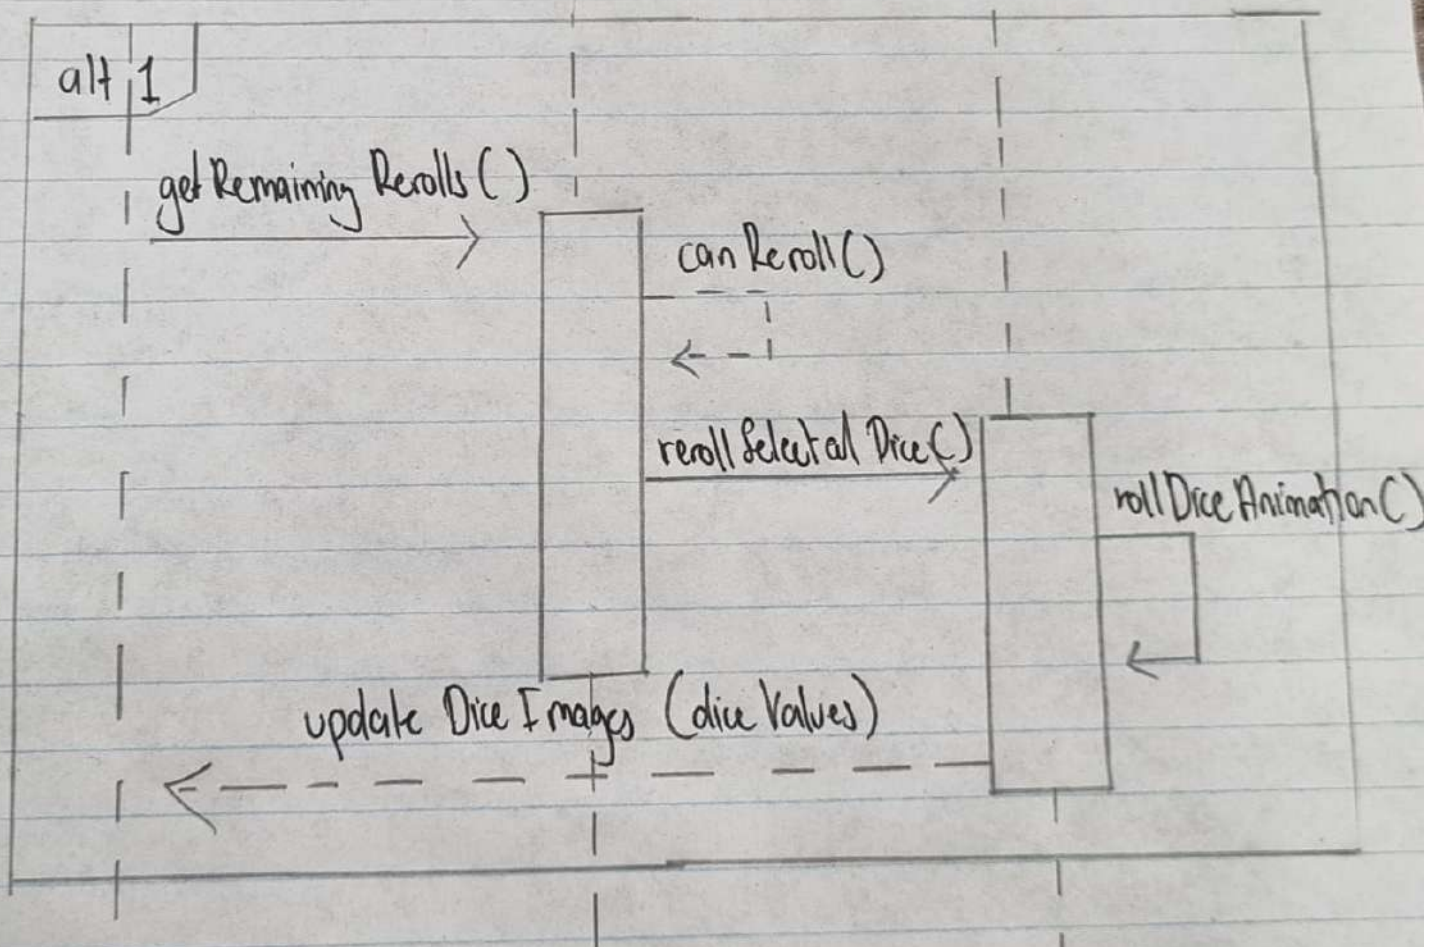 alt 1
getRemaining Rerolls()
canReroll()
rerollSelected Dice()
rollDiceAnimation()
update Dice Images (dice Values)